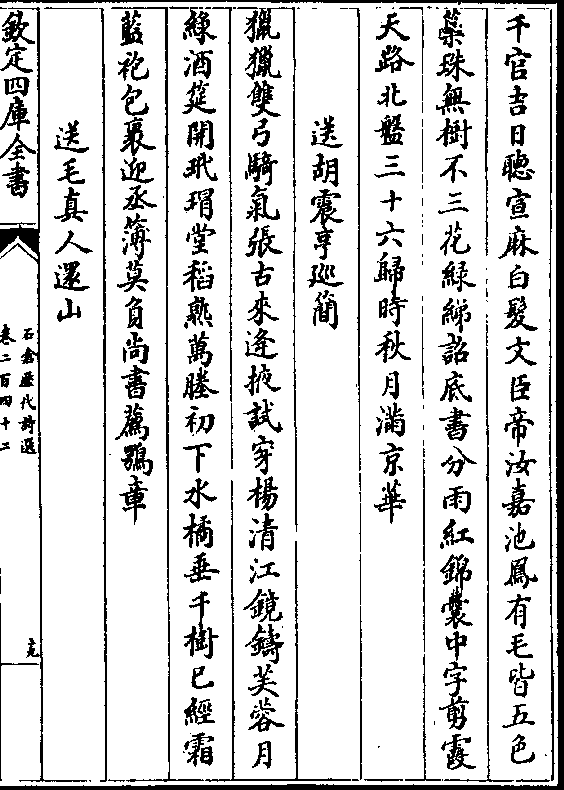 千官吉日聽宣麻白髮文臣帝汝嘉池鳳有毛皆五色
蘂珠無樹不三花緑綈詔底書分雨紅錦囊中字剪霞
天路北盤三十六歸時秋月滿京華
送胡震亨巡簡
獵獵雙弓騎氣張古來逢掖試穿楊清江鏡鑄芙蓉月
緑酒筵開玳瑁堂稻熟萬塍初下水橘垂千樹已經霜
藍袍包裹迎丞薄莫負尚書薦鶚章
送毛真人還山
欽定四庫全書
石倉歷代詩選
卷二百四十二